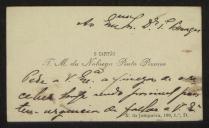 Ao Exmo. Dr. T. Borges
O CAPITÃO
T. M. da Nobrega Pinto Pizarro
Pede a V. Exa. a fineza de o re
ceber hoje sendo possivel pois
tem urgencia de fallar a V. Exa
R. da Junqueira, 199, 1.º, D.